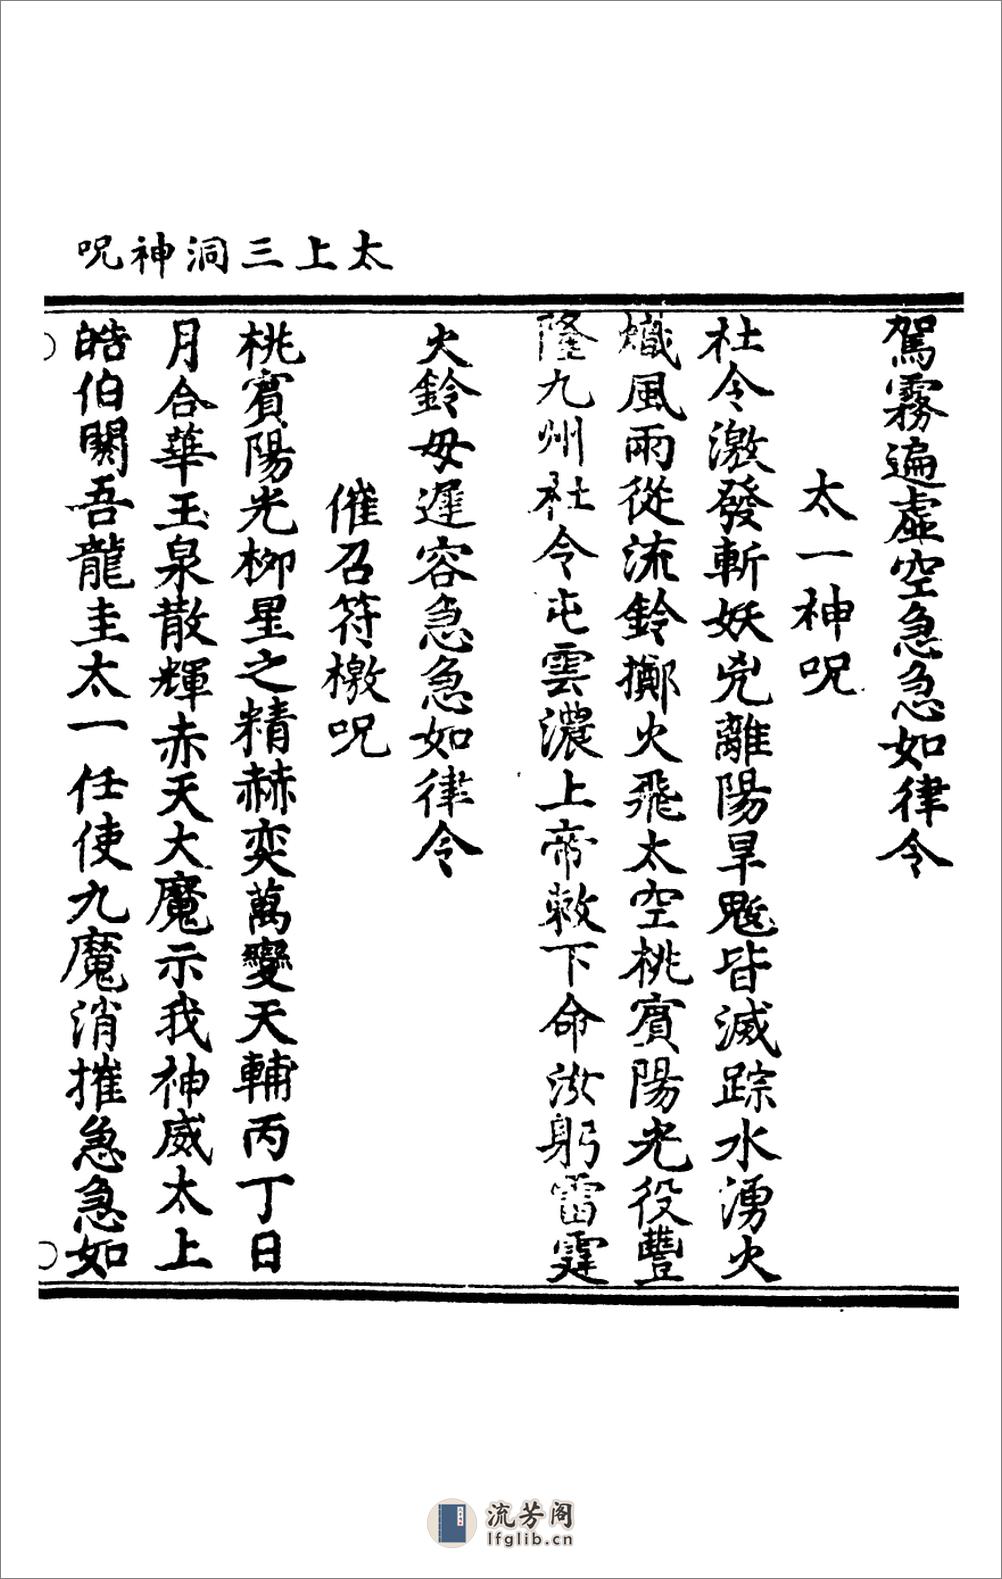 太上三洞神呪
駕霧遍虛空急急如律令
太一神呪
杜令激發斬妖兇離陽旱魃皆滅踪水湧火
熾風雨從流鈴擲火飛太空桃賓陽光役豐
隆九州社令屯雲濃上帝敕下命汝躬雷霆
火鈴毋遲容急急如律令
催召符檄呪
桃賓陽光柳星之精赫奕萬變天輔丙丁日
月合華玉泉散輝赤天大魔示我神威太上
皓伯闕吾龍圭太一任使九魔消摧急急如
流芳阁
lfglib.cn